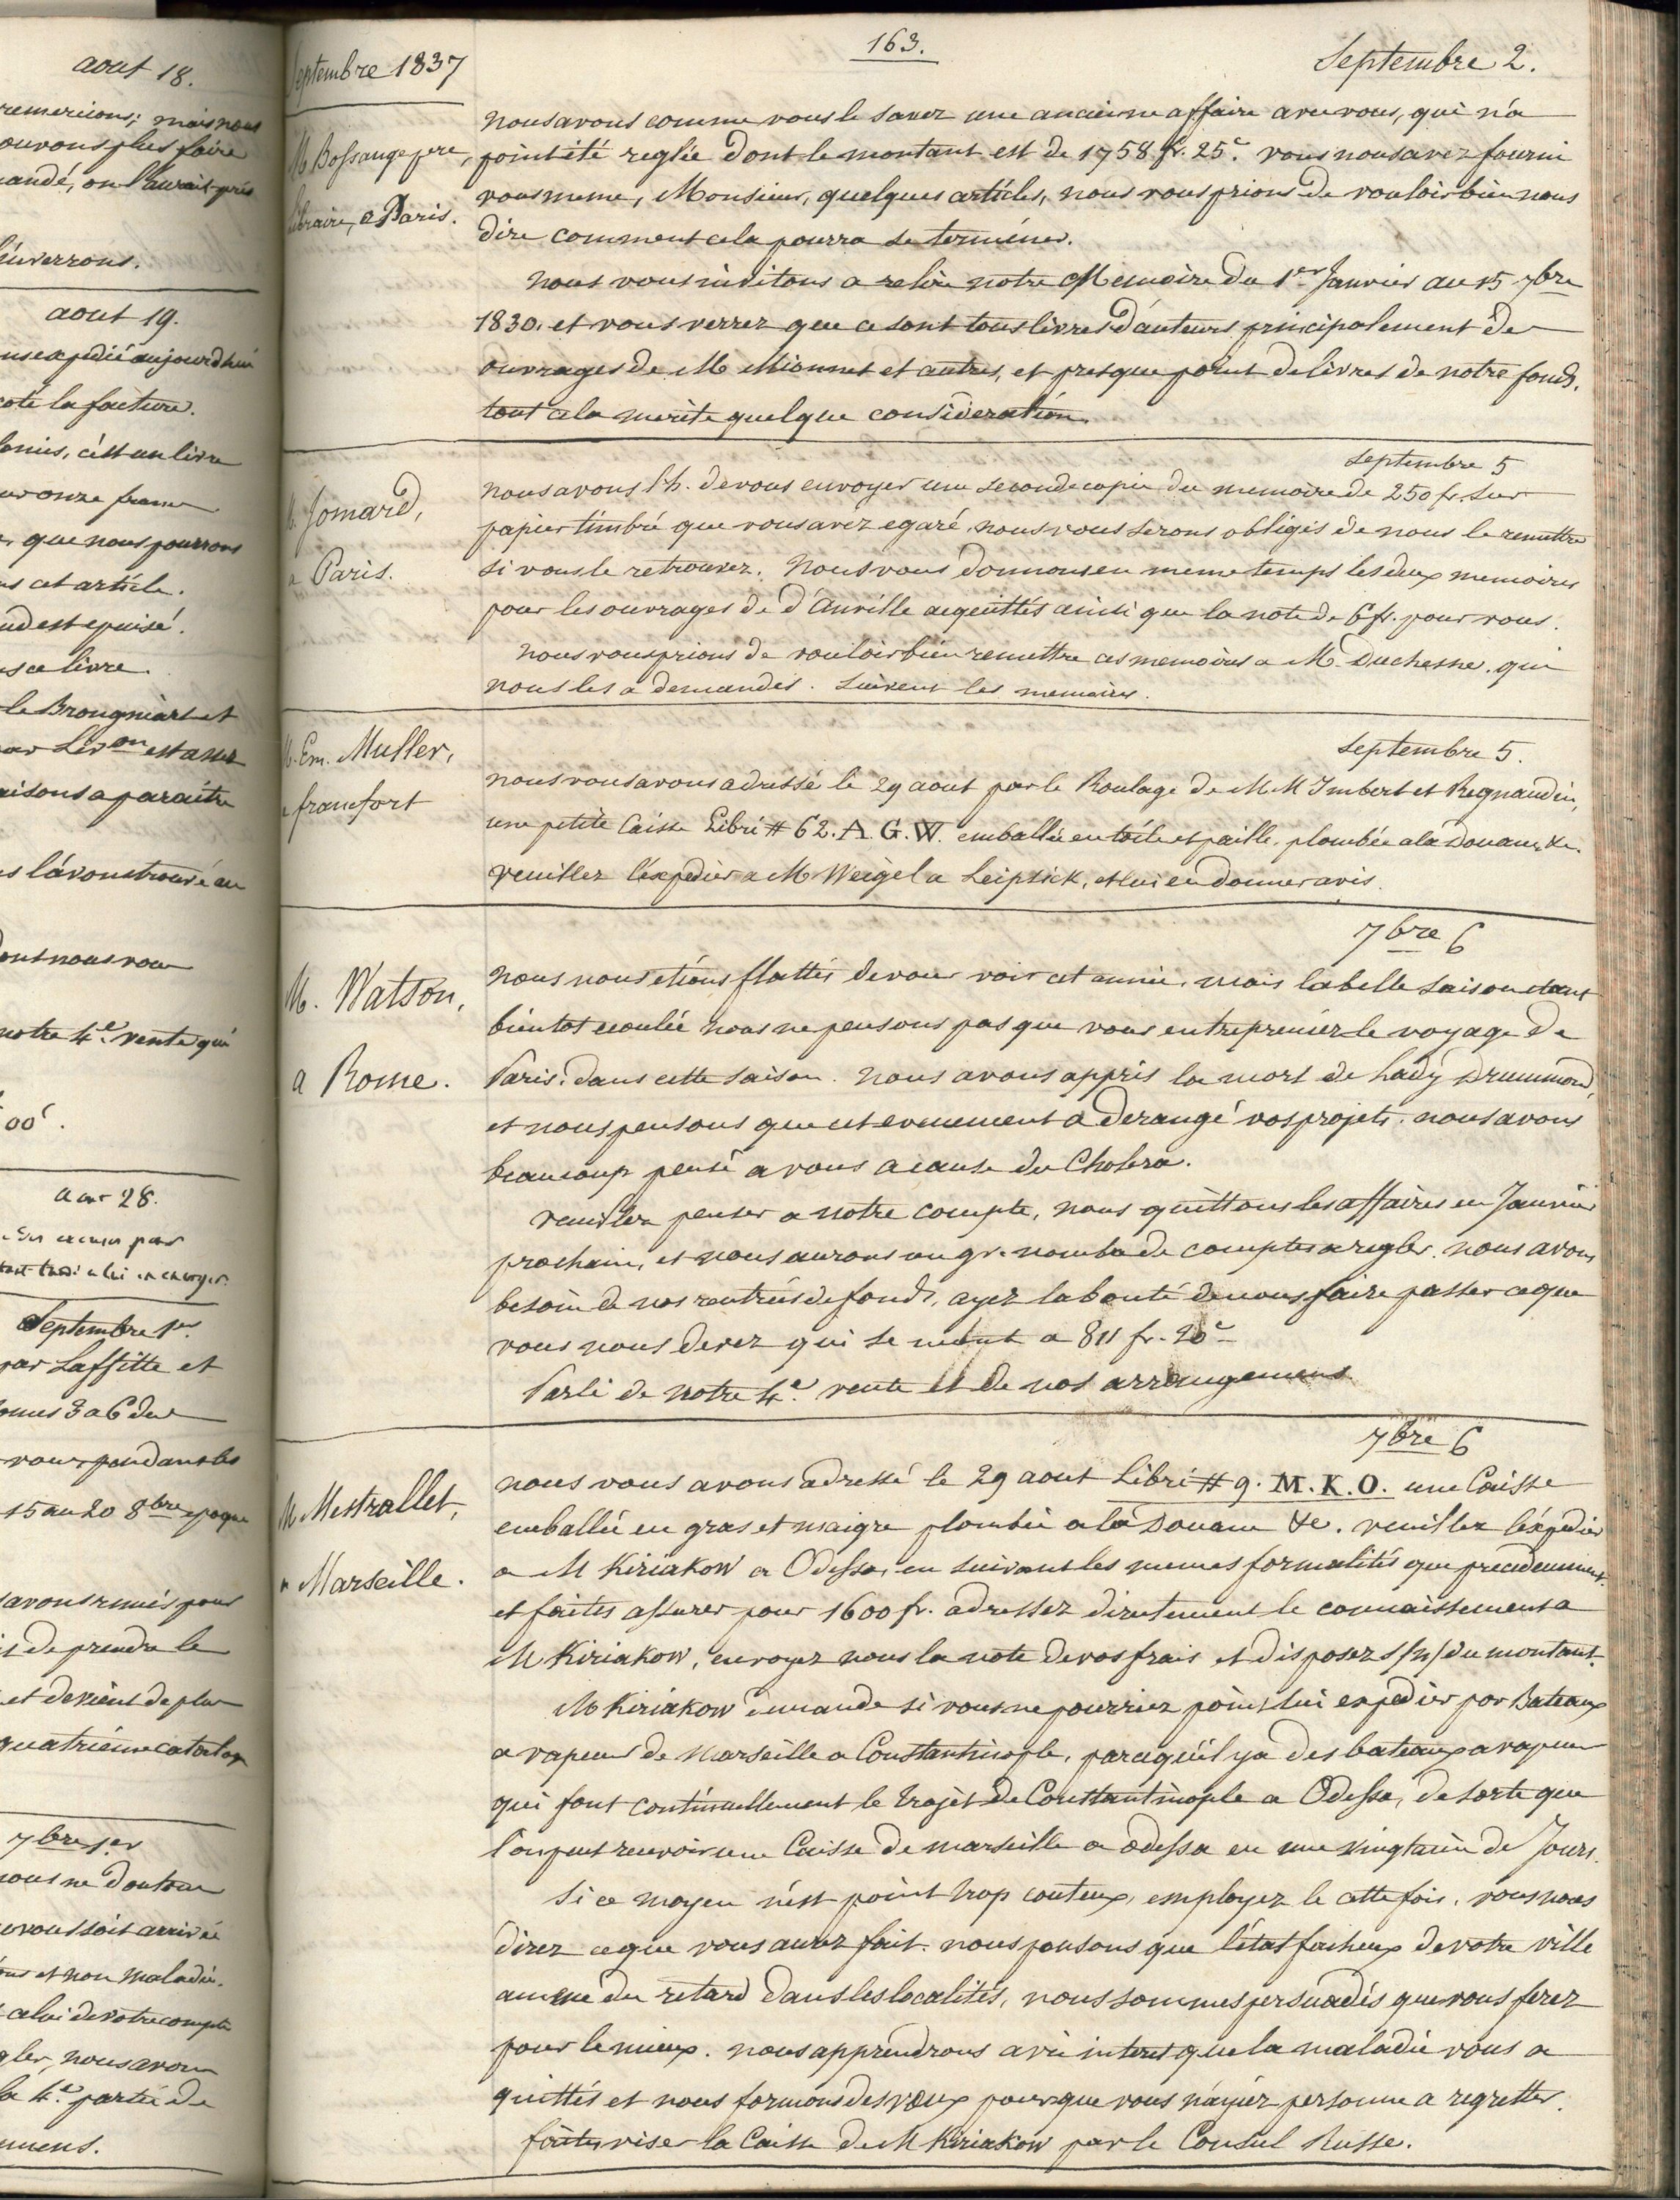 aout 18.
remercions; mais nous
ouvons plus faire
andé, on l'aurait pris
l'enverrons.
aout 19.
ns expedié aujourd'hui
coté la facture.
c'est un livre
onze francs
que nous pourrons
ns cet article.
ud est epuisé.
ns ce livre.
le Brongniart et
par Livon est assez
aisons a paraitre
s l'avons trouvé au
dont nous vous
notre 4e. vente qui
00c.
aout 28.
Septembre 1er.
par Laffitte et
tomes 3 a 6 de
vous pendant les
15 au 20 8bre epoque
avons remis pour
de prendre le
et devient de plus
quatriéme catalog
7bre 1er
nous ne doutons
vous soit arrivée
ns et non maladie.
celui de votre compte
gler, nous avons
la 4e. partie de
mens.
163.
Septembre 1837
Septembre 2.
M Bossange pere,
libraire, a Paris.
nous avons comme vous le savez une ancienne affaire avec vous, qui n'a
point été reglée dont le montant est de 1758 fr. 25c. vous nous avez fourni
vous meme, Monsieur, quelques articles, nous vous prions de vouloir bien nous
dire comment cela pourra se terminer.
nous vous invitons a relire notre Memoire du 1er Janvier au 15 7bre
1830. et vous verrez que ce sont tous livres d'auteurs principalement de
ouvrages de M Mionnet et autres, et presque point de livres de notre fonds.
tout cela merite quelque consideration.
Septembre 5
M. Jomard,
a Paris.
nous avons l'h. de vous envoyer une seconde copie du memoire de 250 fr. sur
papier timbré que vous avez egaré. nous vous serons obligés de nous le remettre
si vous le retrouvez. Nous vous donnons en meme temps les deux memoires
pour les ouvrages de d'Anville acquittés ainsi que la note de 6 fr. pour vous.
nous vous prions de vouloir bien remettre ces memoires a M. Duchesne. qui
nous les a demandés. suivent les memoires.
Septembre 5.
M. Em. Muller,
a francfort
nous vous avons adressé le 29 aout par le Roulage de MM Imbert et Regnaudin,
une petite Caisse Libri # 62. A. G. W. emballée en toile et paille, plombée a la Douane &c.
veuillez l'expedier a M Weigel a Leipsick, et lui en donner avis.
7bre 6
M. Watson,
a Rome.
nous nous etions flattés de vous voir cet année, mais la belle saison etant
bientot ecoulée nous ne pensons pas que vous entrepreniez le voyage de
Paris. dans cette saison. nous avons appris la mort de Lady Drummond,
et nous pensons que cet evenement a derangé vos projets. nous avons
beaucoup pensé a vous a cause du Cholera.
veuillez penser a notre compte, nous quittons les affaires en Janvier
prochain, et nous aurons un gr. nombre de comptes a regler. nous avons
besoin de nos rentrées de fonds, ayez la bonté de nous faire passer ce que
vous nous devez qui se monte a 811 fr. 20c
Parlé de notre 4e. vente et de nos arrangemens
7bre 6
M Mestrallet,
a Marseille.
nous vous avons adressé le 29 aout Libri # 9. M. K. O. une Caisse
emballée en gras et maigre plombée a la Douane &c. veuillez l'expedier
a M Kiriakow a Odessa, en suivant les memes formalités que precedemment.
et faites assurer pour 1600 fr. adressez directement le connaissement a
M Kiriakow, envoyez nous la note de vos frais et disposez s/n/ du montant.
M Kiriakow demande si vous ne pourriez point lui expedier par Bateaux
a vapeur de Marseille a Constantinople, parcequ'il y a des bateaux a vapeur
qui font continuellement le trajet de Constantinople a Odessa, de sorte que
l'on peut recevoir une Caisse de marseille a odessa en une vingtaine de Jours.
si ce moyen n'est point trop couteux, employez le cette fois. vous nous
direz ce que vous aurez fait. nous pensons que l'état facheux de votre ville
amene du retard dans les localités, nous sommes persuadés que vous ferez
pour le mieux. nous apprendrons avec interet que la maladie vous a
quittés et nous formons des vœux pour que vous n'ayiez personne a regretter.
faites viser la Caisse de M Kiriakow par le Consul Russe.